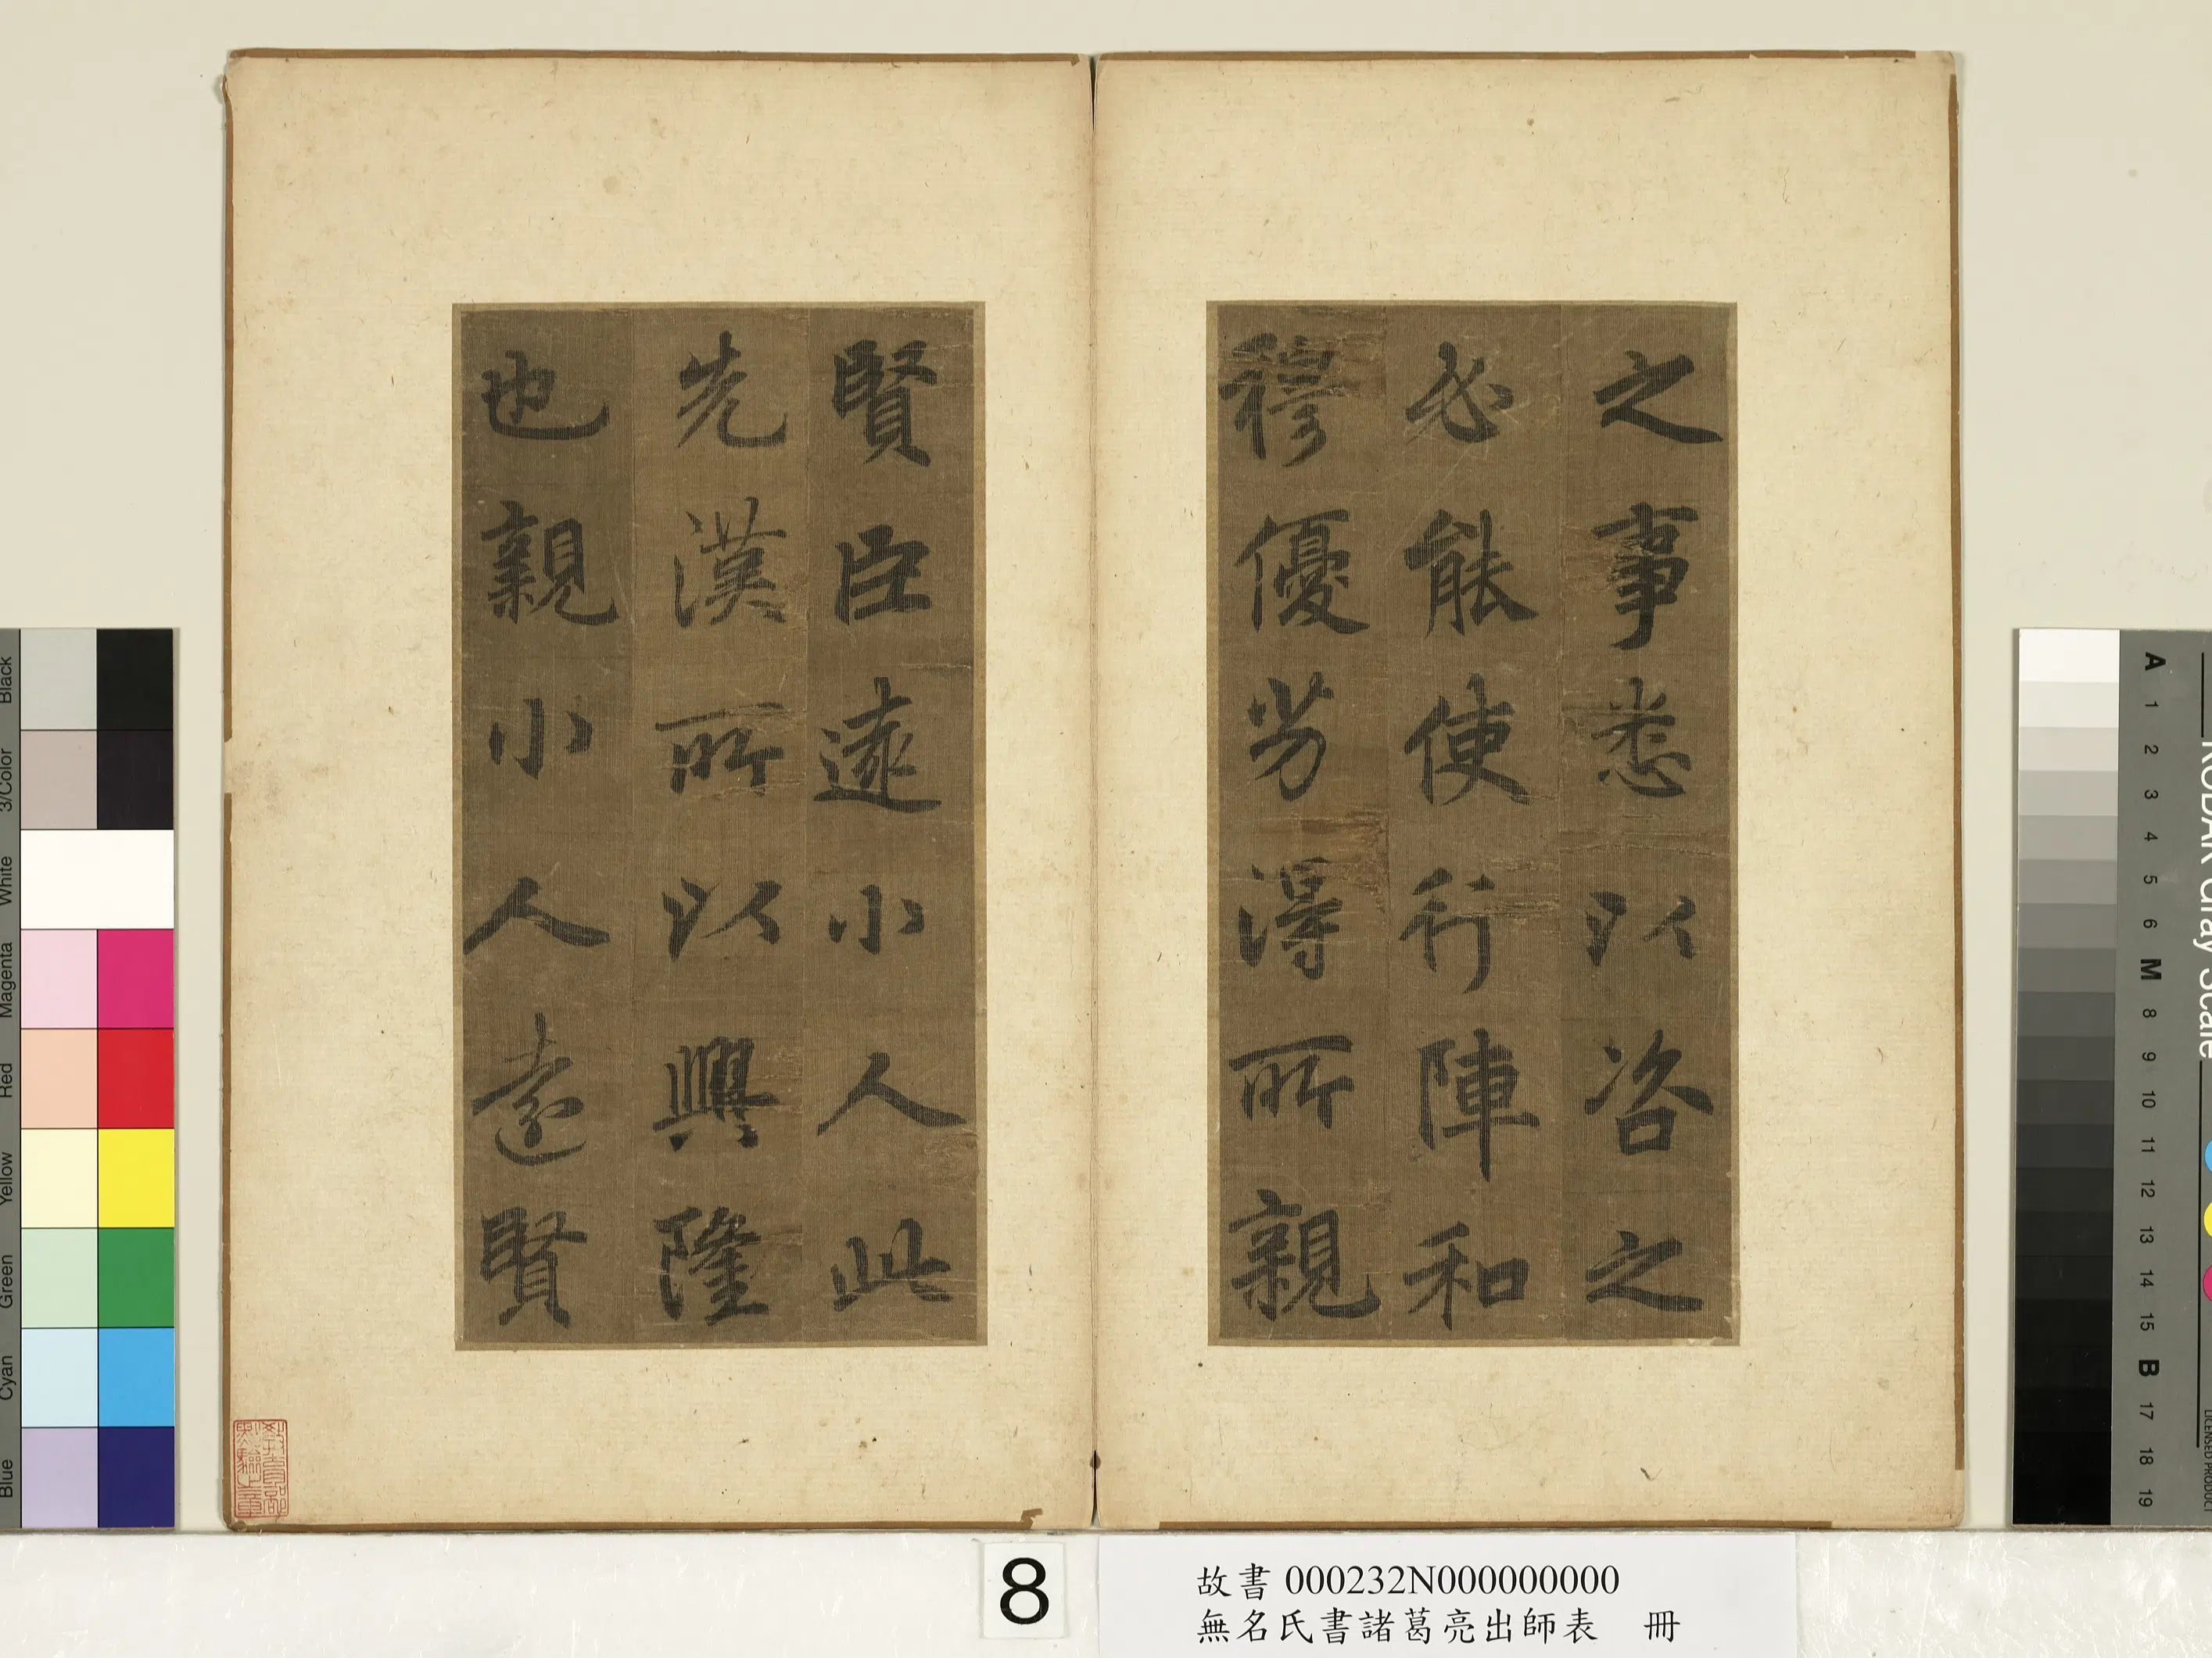 之事悉以咨之
必能使行陣和
穆優劣得所親
賢臣遠小人此
先漢所以興隆
也親小人遠賢
教育部點驗之章
8
故書 000232N000000000
無名氏書諸葛亮出師表 冊
Black
3/Color
White
Magenta
Red
Yellow
Green
Cyan
Blue
KODAK Gray Scale
A 1 2 3 4 5 6 M 8 9 10 11 12 13 14 15 B 17 18 19
LICENSED PRODUCT